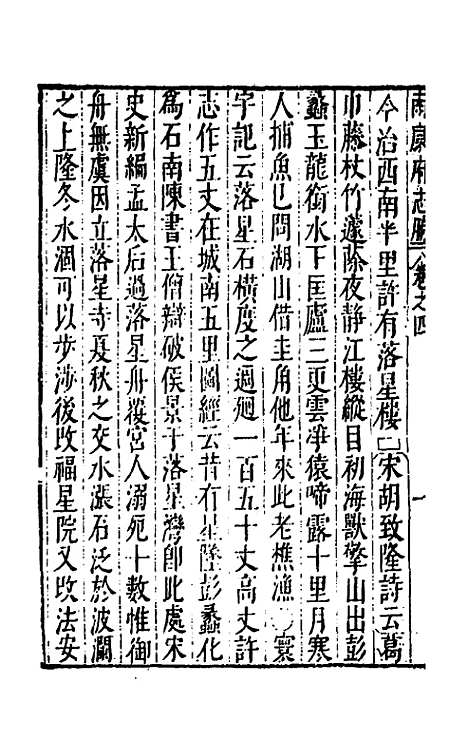 南康府志 卷之四 一
今治西南半里許有落星樓宋胡致隆詩云葛
巾藤杖竹籧篨夜靜江樓縱目初海獸擎山出彭
蠡玉龍銜水下匡廬三更雲淨猿啼露十里月寒
人捕魚已問湖山借圭角他年來此老樵漁寰
宇記云落星石橫度之過廻一百五十丈高丈許
志作五丈在城南五里圖經云昔有星墜彭蠡化
爲石南陳書王僧辯破侯景于落星灣卽此處宋
史新編孟太后過落星舟覆宮人溺死十數惟御
舟無虞因立落星寺夏秋之交水漲石泛於波瀾
之上隆冬水涸可以步涉後改福星院又改法安